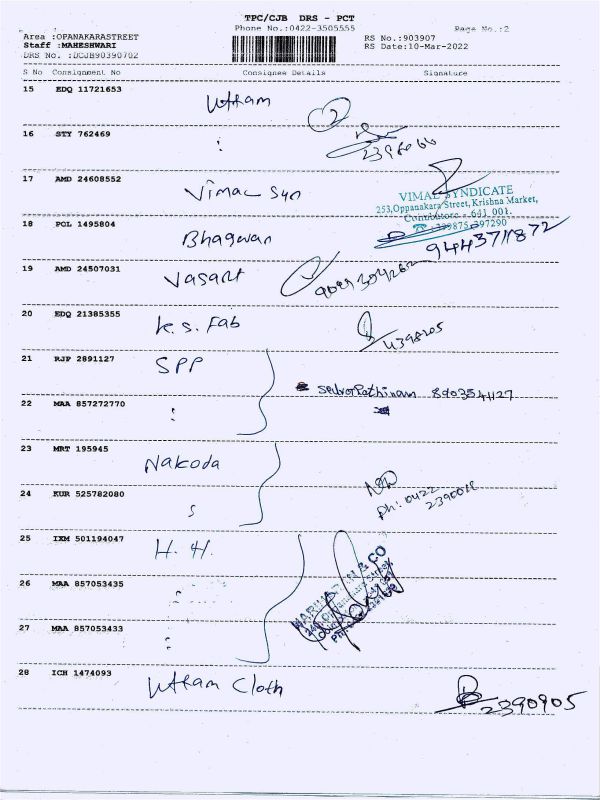 TPC/CJB DRS - PCT
Phone No.:0422-3505555
Page No.:2
Area :OPANAKARASTREET
Staff :MAHESHWARI
DRS No. :DCJB90390702
RS No.:903907
RS Date:10-Mar-2022
S No Consignment No Consignee Details Signature
15 EDQ 11721653 Uttam
16 STY 762469 :
17 AMD 24608552 Vimal Syn
VIMAL SYNDICATE
253,Oppanakara Street, Krishna Market,
Coimbatore - 641 001.
18 POL 1495804 Bhagwan 9443711872
19 AMD 24507031 Vasant
20 EDQ 21385355 K.S. Fab 4398205
21 RJP 2891127 SPP
8903541127
22 MAA 857272770 :
23 MRT 195945 Nakoda
24 KUR 525782080
ph: 0422
25 IXM 501194047 H. H.
& CO
26 MAA 857053435
27 MAA 857053433 :
28 ICH 1474093 Uttam Cloth 2390905